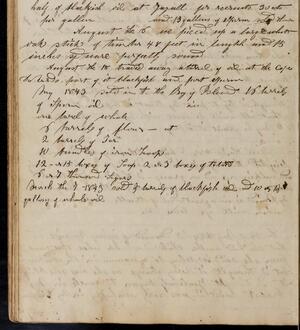 half of blackfish oil at Fayall for recruits 30 cts
per gallon and 13 gallons of sperm oil
August the 6 we picked up a large white
oak stick of timber 48 feet in length and 15
inches square perfectly sound
August the 18 traded away a barrel of oil at the Cape
de Verds part of it blackfish and part sperm
May 1843 sold in to the Bay of Islands 15 barrels
of Sperm oil
one barrel of whale
6 barrels of flour — at
2 barrels of Tar
10 bundles of iron hoop
12 - 15 boxes of Soap 2 or 3 boxes of
5 or 7 thousand
March the 7 1843 sold 8 barrels of blackfish and 10 or
gallons of whale oil